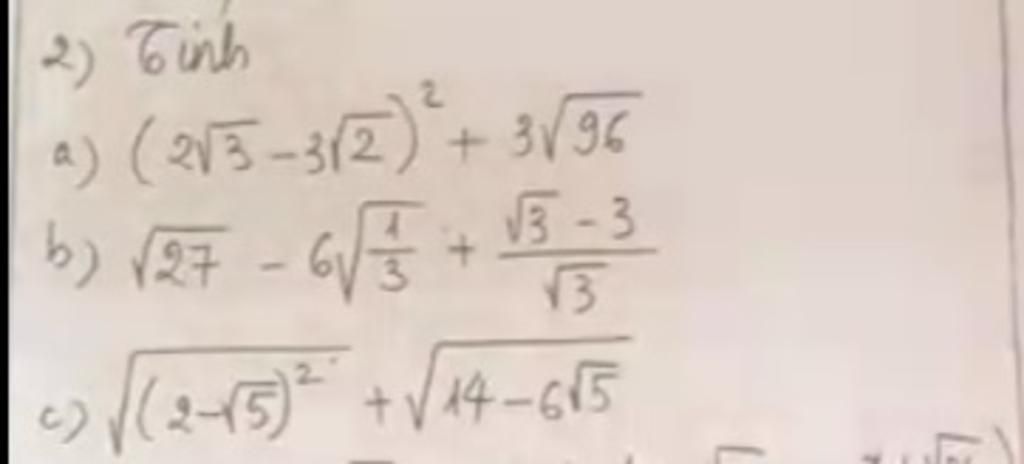 2) Tính
a) (2√3 - 3√2)² + 3√96
b) √27 - 6√(1/3) + (√3 - 3)/√3
c) √((2-√5)²) + √(14 - 6√5)